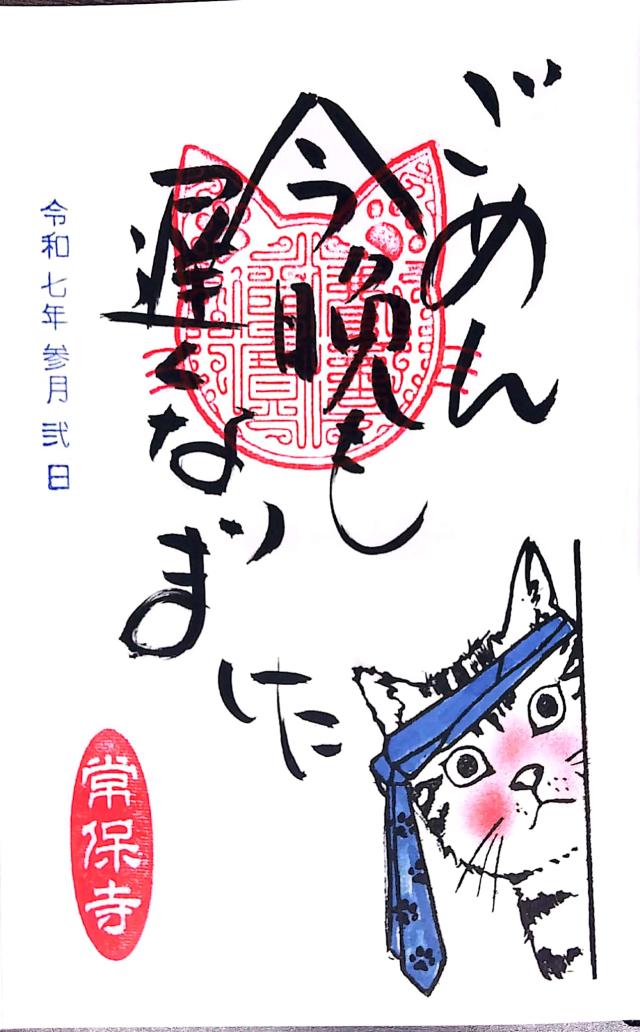 ごめん
今晩も
遅くなりました
令和七年参月弐日
常保寺